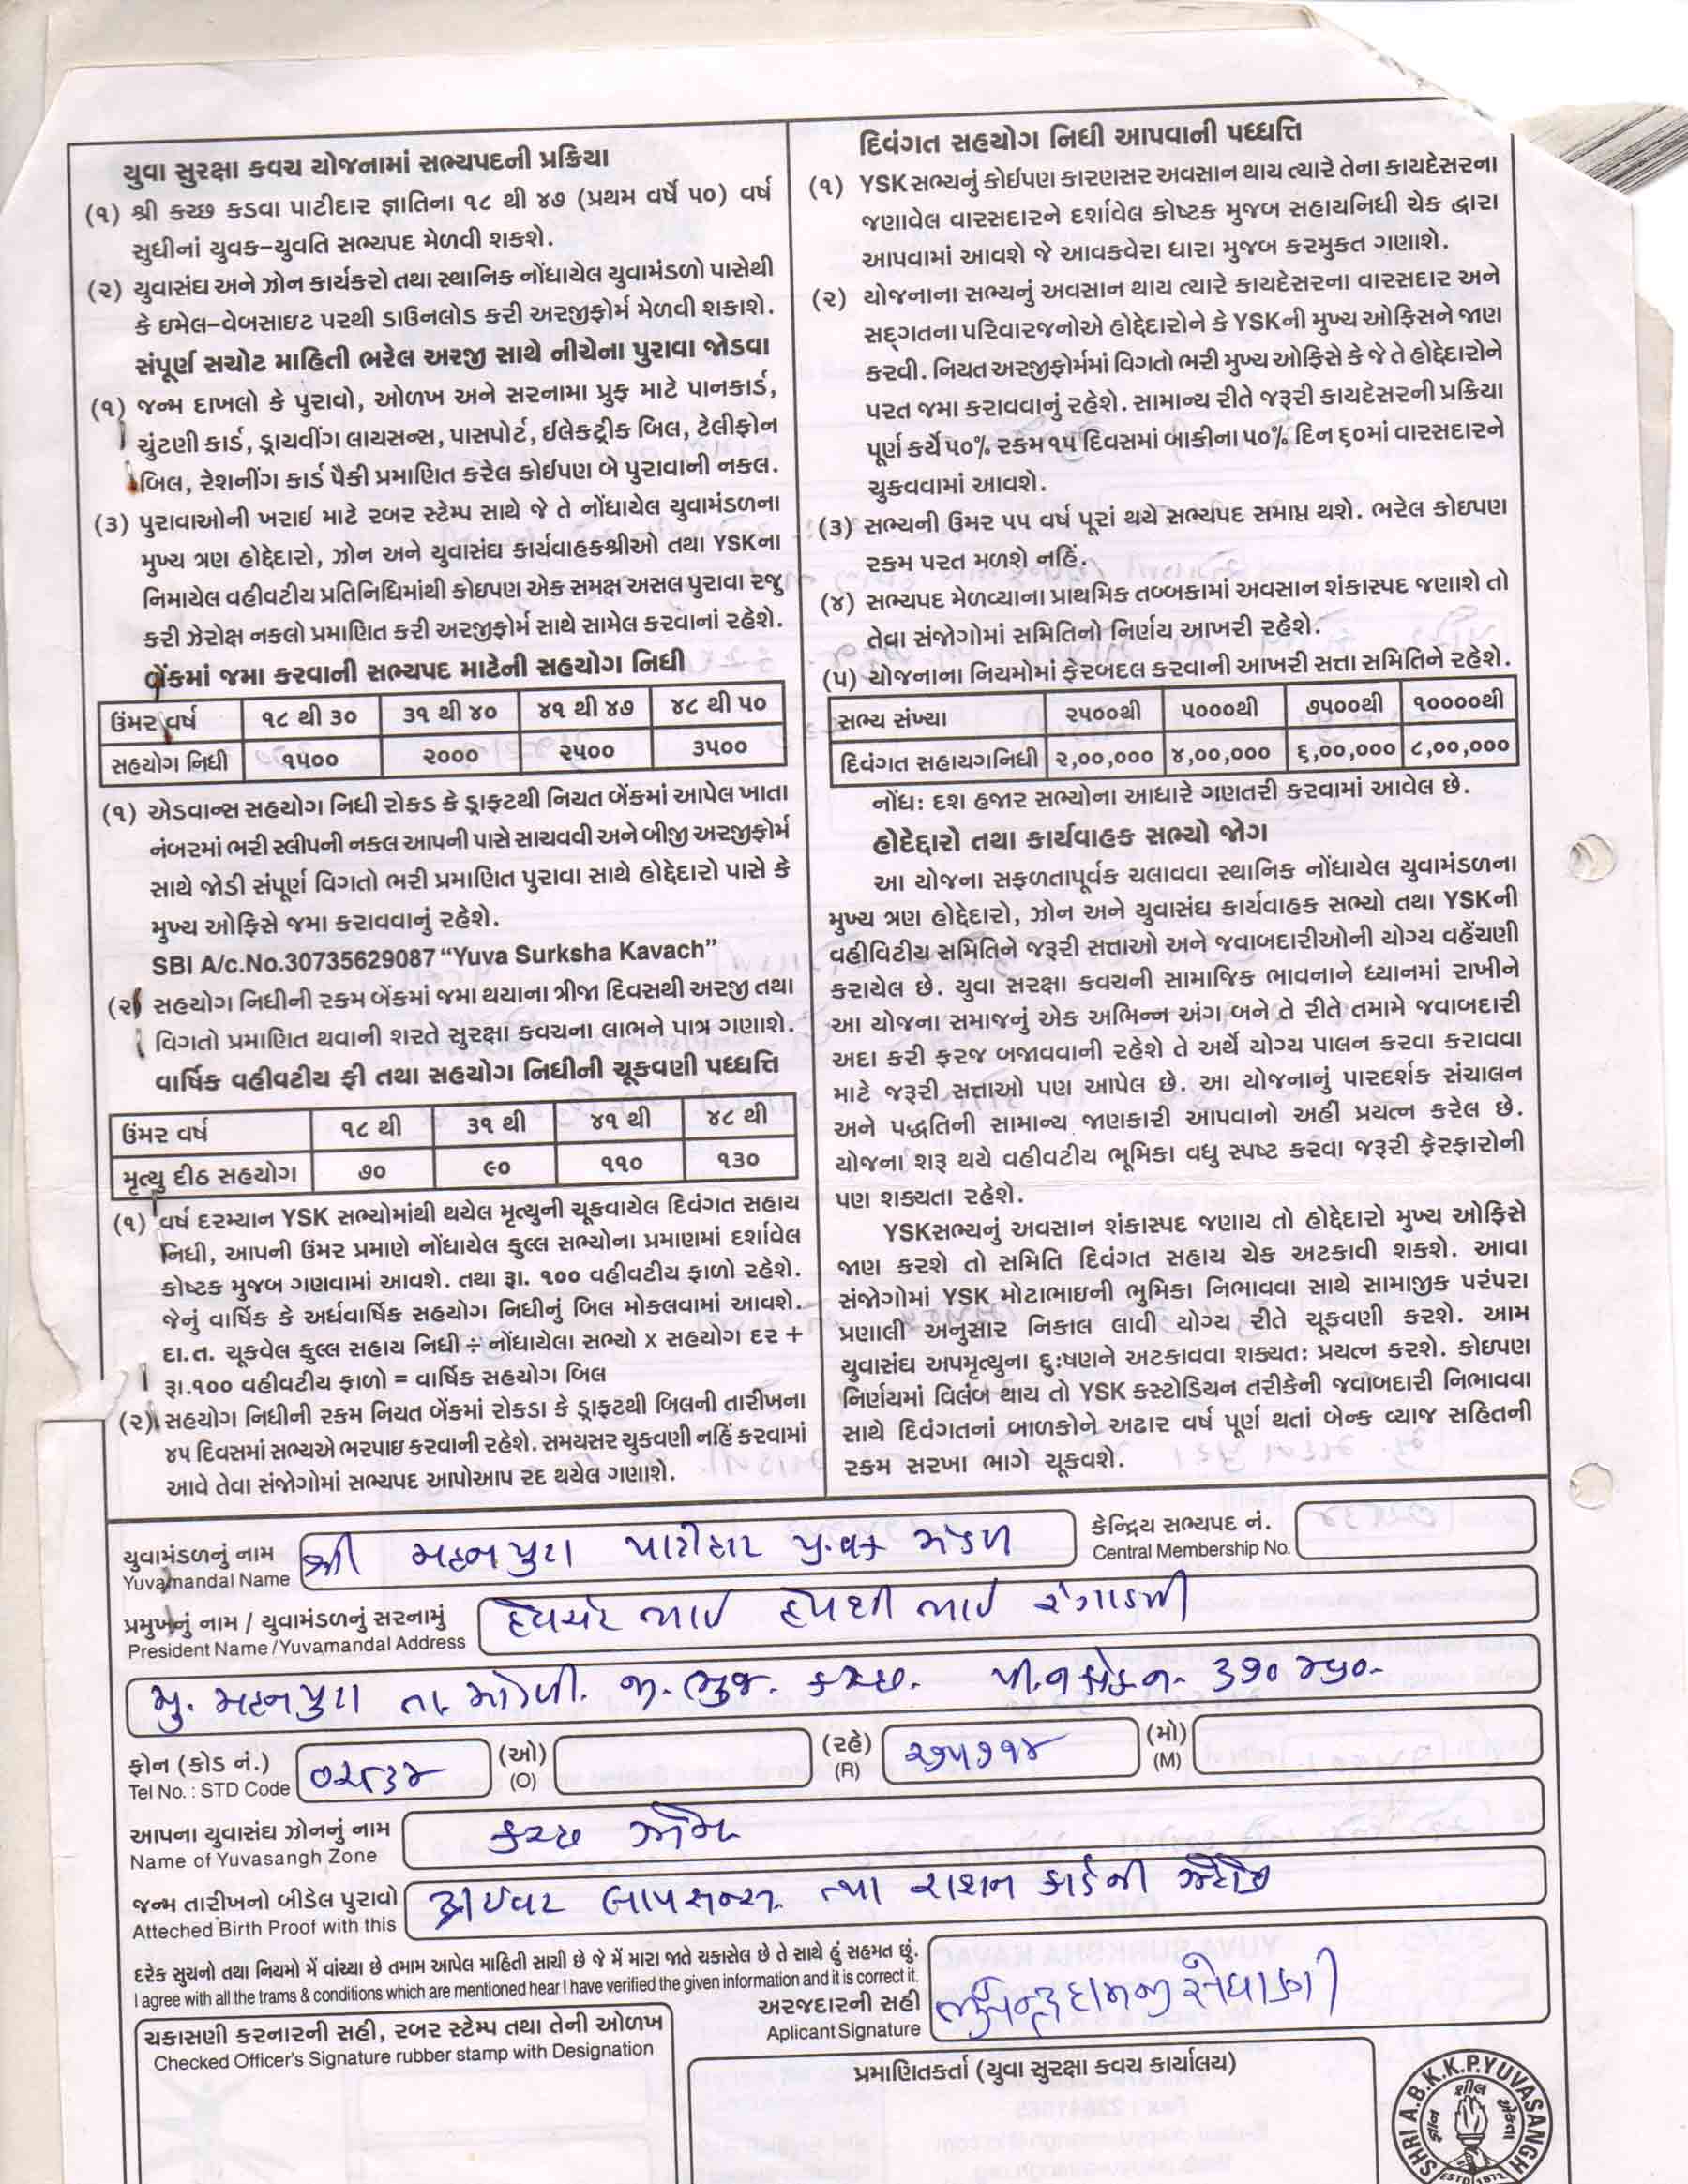 યુવા સુરક્ષા કવચ યોજનામાં સભ્યપદની પ્રક્રિયા
(૧) શ્રી કચ્છ કડવા પાટીદાર જ્ઞાતિના ૧૮ થી ૪૭ (પ્રથમ વર્ષે ૫૦) વર્ષ
સુધીનાં યુવક–યુવતિ સભ્યપદ મેળવી શકશે.
(૨) યુવાસંઘ અને ઝોન કાર્યકરો તથા સ્થાનિક નોંધાયેલ યુવામંડળો પાસેથી
કે ઇમેલ–વેબસાઇટ પરથી ડાઉનલોડ કરી અરજીફોર્મ મેળવી શકાશે.
સંપૂર્ણ સચોટ માહિતી ભરેલ અરજી સાથે નીચેના પુરાવા જોડવા
(૧) જન્મ દાખલો કે પુરાવો, ઓળખ અને સરનામા પ્રુફ માટે પાનકાર્ડ,
ચુંટણી કાર્ડ, ડ્રાયવીંગ લાયસન્સ, પાસપોર્ટ, ઈલેકટ્રીક બિલ, ટેલીફોન
બિલ, રેશનીંગ કાર્ડ પૈકી પ્રમાણિત કરેલ કોઈપણ બે પુરાવાની નકલ.
(૩) પુરાવાઓની ખરાઈ માટે રબર સ્ટેમ્પ સાથે જે તે નોંધાયેલ યુવામંડળના
મુખ્ય ત્રણ હોદ્દેદારો, ઝોન અને યુવાસંઘ કાર્યવાહકશ્રીઓ તથા YSKના
નિમાયેલ વહીવટીય પ્રતિનિધિમાંથી કોઇપણ એક સમક્ષ અસલ પુરાવા રજુ
કરી ઝેરોક્ષ નકલો પ્રમાણિત કરી અરજીફોર્મ સાથે સામેલ કરવાનાં રહેશે.
બેંકમાં જમા કરવાની સભ્યપદ માટેની સહયોગ નિધી
ઉંમર વર્ષ ૧૮ થી ૩૦ ૩૧ થી ૪૦ ૪૧ થી ૪૭ ૪૮ થી ૫૦
સહયોગ નિધી ૧૫૦૦ ૨૦૦૦ ૨૫૦૦ ૩૫૦૦
(૧) એડવાન્સ સહયોગ નિધી રોકડ કે ડ્રાફટથી નિયત બેંકમાં આપેલ ખાતા
નંબરમાં ભરી સ્લીપની નકલ આપની પાસે સાચવવી અને બીજી અરજીફોર્મ
સાથે જોડી સંપૂર્ણ વિગતો ભરી પ્રમાણિત પુરાવા સાથે હોદ્દેદારો પાસે કે
મુખ્ય ઓફિસે જમા કરાવવાનું રહેશે.
SBI A/c.No.30735629087 “Yuva Surksha Kavach”
(૨) સહયોગ નિધીની રકમ બેંકમાં જમા થયાના ત્રીજા દિવસથી અરજી તથા
વિગતો પ્રમાણિત થવાની શરતે સુરક્ષા કવચના લાભને પાત્ર ગણાશે.
વાર્ષિક વહીવટીય ફી તથા સહયોગ નિધીની ચૂકવણી પધ્ધતિ
ઉંમર વર્ષ ૧૮ થી ૩૧ થી ૪૧ થી ૪૮ થી
મૃત્યુ દીઠ સહયોગ ૭૦ ૯૦ ૧૧૦ ૧૩૦
(૧) વર્ષ દરમ્યાન YSK સભ્યોમાંથી થયેલ મૃત્યુની ચૂકવાયેલ દિવંગત સહાય
નિધી, આપની ઉંમર પ્રમાણે નોંધાયેલ કુલ્લ સભ્યોના પ્રમાણમાં દર્શાવેલ
કોષ્ટક મુજબ ગણવામાં આવશે. તથા રૂા. ૧૦૦ વહીવટીય ફાળો રહેશે.
જેનું વાર્ષિક કે અર્ધવાર્ષિક સહયોગ નિધીનું બિલ મોકલવામાં આવશે.
દા.ત. ચૂકવેલ કુલ્લ સહાય નિધી ÷ નોંધાયેલા સભ્યો x સહયોગ દર +
રૂા.૧૦૦ વહીવટીય ફાળો = વાર્ષિક સહયોગ બિલ
(૨) સહયોગ નિધીની રકમ નિયત બેંકમાં રોકડા કે ડ્રાફટથી બિલની તારીખના
૪૫ દિવસમાં સભ્યએ ભરપાઇ કરવાની રહેશે. સમયસર ચુકવણી નહિં કરવામાં
આવે તેવા સંજોગોમાં સભ્યપદ આપોઆપ રદ થયેલ ગણાશે.
દિવંગત સહયોગ નિધી આપવાની પધ્ધતિ
(૧) YSK સભ્યનું કોઈપણ કારણસર અવસાન થાય ત્યારે તેના કાયદેસરના
જણાવેલ વારસદારને દર્શાવેલ કોષ્ટક મુજબ સહાયનિધી ચેક દ્વારા
આપવામાં આવશે જે આવકવેરા ધારા મુજબ કરમુકત ગણાશે.
(૨) યોજનાના સભ્યનું અવસાન થાય ત્યારે કાયદેસરના વારસદાર અને
સદ્ગતના પરિવારજનોએ હોદ્દેદારોને કે YSKની મુખ્ય ઓફિસને જાણ
કરવી. નિયત અરજીફોર્મમાં વિગતો ભરી મુખ્ય ઓફિસે કે જે તે હોદ્દેદારોને
પરત જમા કરાવવાનું રહેશે. સામાન્ય રીતે જરૂરી કાયદેસરની પ્રક્રિયા
પૂર્ણ કર્યે ૫૦% રકમ ૧૫ દિવસમાં બાકીના ૫૦% દિન ૬૦માં વારસદારને
ચુકવવામાં આવશે.
(૩) સભ્યની ઉંમર ૫૫ વર્ષ પૂરાં થયે સભ્યપદ સમાપ્ત થશે. ભરેલ કોઇપણ
રકમ પરત મળશે નહિં.
(૪) સભ્યપદ મેળવ્યાના પ્રાથમિક તબ્બકામાં અવસાન શંકાસ્પદ જણાશે તો
તેવા સંજોગોમાં સમિતિનો નિર્ણય આખરી રહેશે.
(૫) યોજનાના નિયમોમાં ફેરબદલ કરવાની આખરી સત્તા સમિતિને રહેશે.
સભ્ય સંખ્યા ૨૫૦૦થી ૫૦૦૦થી ૭૫૦૦થી ૧૦૦૦૦થી
દિવંગત સહાયગનિધી ૨,૦૦,૦૦૦ ૪,૦૦,૦૦૦ ૬,૦૦,૦૦૦ ૮,૦૦,૦૦૦
નોંધ: દશ હજાર સભ્યોના આધારે ગણતરી કરવામાં આવેલ છે.
હોદેદ્દારો તથા કાર્યવાહક સભ્યો જોગ
આ યોજના સફળતાપૂર્વક ચલાવવા સ્થાનિક નોંધાયેલ યુવામંડળના
મુખ્ય ત્રણ હોદ્દેદારો, ઝોન અને યુવાસંઘ કાર્યવાહક સભ્યો તથા YSKની
વહીવિટીય સમિતિને જરૂરી સત્તાઓ અને જવાબદારીઓની યોગ્ય વહેંચણી
કરાયેલ છે. યુવા સરક્ષા કવચની સામાજિક ભાવનાને ધ્યાનમાં રાખીને
આ યોજના સમાજનું એક અભિન્ન અંગ બને તે રીતે તમામે જવાબદારી
અદા કરી ફરજ બજાવવાની રહેશે તે અર્થે યોગ્ય પાલન કરવા કરાવવા
માટે જરૂરી સત્તાઓ પણ આપેલ છે. આ યોજનાનું પારદર્શક સંચાલન
અને પદ્ધતિની સામાન્ય જાણકારી આપવાનો અહીં પ્રયત્ન કરેલ છે.
યોજના શરૂ થયે વહીવટીય ભૂમિકા વધુ સ્પષ્ટ કરવા જરૂરી ફેરફારોની
પણ શક્યતા રહેશે.
YSKસભ્યનું અવસાન શંકાસ્પદ જણાય તો હોદ્દેદારો મુખ્ય ઓફિસે
જાણ કરશે તો સમિતિ દિવંગત સહાય ચેક અટકાવી શકશે. આવા
સંજોગોમાં YSK મોટાભાઇની ભુમિકા નિભાવવા સાથે સામાજીક પરંપરા
પ્રણાલી અનુસાર નિકાલ લાવી યોગ્ય રીતે ચૂકવણી કરશે. આમ
યુવાસંઘ અપમૃત્યુના દુઃષણને અટકાવવા શક્યત: પ્રયત્ન કરશે. કોઇપણ
નિર્ણયમાં વિલંબ થાય તો YSK કસ્ટોડિયન તરીકેની જવાબદારી નિભાવવા
સાથે દિવંગતનાં બાળકોને અઢાર વર્ષ પૂર્ણ થતાં બેન્ક વ્યાજ સહિતની
રકમ સરખા ભાગે ચૂકવશે.
યુવામંડળનું નામ શ્રી મદનપુરા પાટીદાર યુવક મંડળ કેન્દ્રિય સભ્યપદ નં.
Yuvamandal Name Central Membership No.
પ્રમુખનું નામ / યુવામંડળનું સરનામું ભાઈ ભાઈ રંગાણી
President Name / Yuvamandal Address
મુ. મદનપુરા તા. જી. ભુજ. કચ્છ.
ફોન (કોડ નં.) ૦૨૮૩૪ (ઓ) (રહે) ૨૭૫૭૧૪ (મો)
Tel No. : STD Code (O) (R) (M)
આપના યુવાસંઘ ઝોનનું નામ કચ્છ ઝોન
Name of Yuvasangh Zone
જન્મ તારીખનો બીડેલ પુરાવો ડ્રાઈવર લાયસન્સ તથા રાશન કાર્ડની
Atteched Birth Proof with this
દરેક સુચનો તથા નિયમો મેં વાંચ્યા છે તમામ આપેલ માહિતી સાચી છે જે મેં મારા જાતે ચકાસેલ છે તે સાથે હું સહમત છું.
I agree with all the trams & conditions which are mentioned hear I have verified the given information and it is correct it.
અરજદારની સહી
Aplicant Signature
ચકાસણી કરનારની સહી, રબર સ્ટેમ્પ તથા તેની ઓળખ
Checked Officer's Signature rubber stamp with Designation
પ્રમાણિતકર્તા (યુવા સુરક્ષા કવચ કાર્યાલય)
SHRI A.B.K.K.P.YUVASANGH